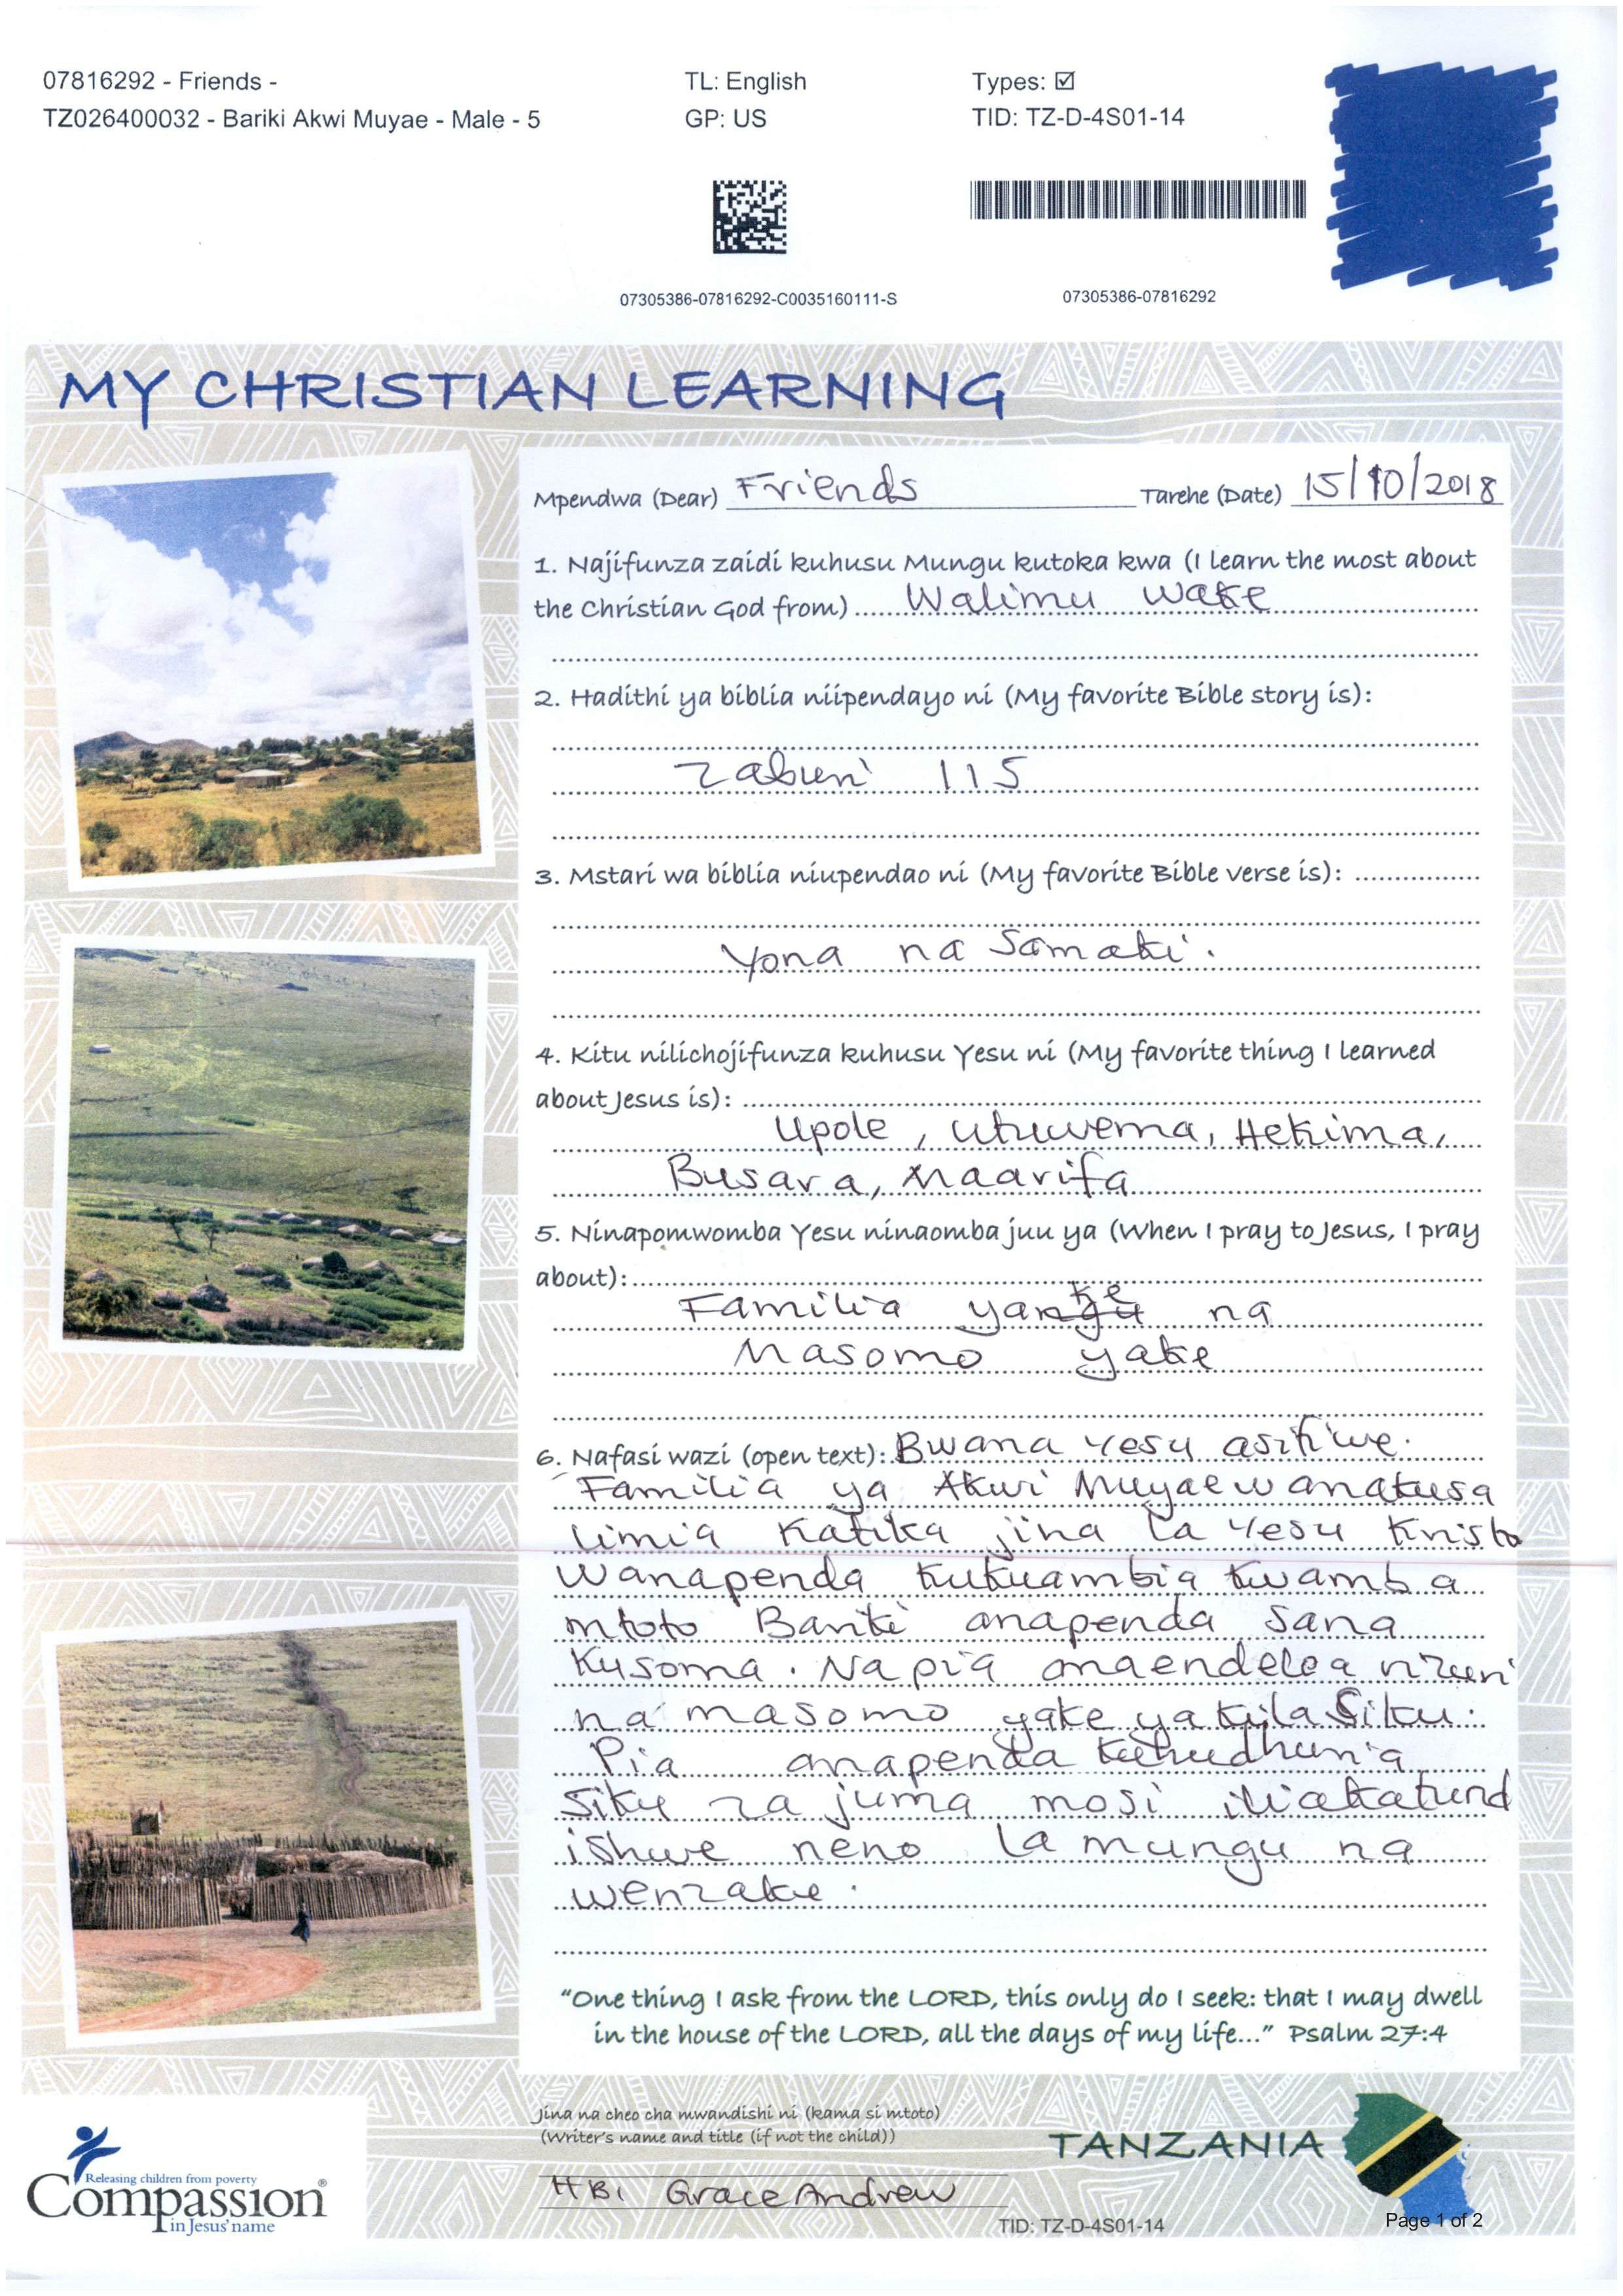 07816292 - Friends -
TZ026400032 - Bariki Akwi Muyae - Male - 5
TL: English
GP: US
Types: ☑
TID: TZ-D-4S01-14
07305386-07816292-C0035160111-S
07305386-07816292
MY CHRISTIAN LEARNING
Mpendwa (Dear) Friends Tarehe (Date) 15/10/2018
1. Najifunza zaidi kuhusu Mungu kutoka kwa (I learn the most about
the Christian God from) Walimu wake
2. Hadithi ya biblia niipendayo ni (My favorite Bible story is):
Zaburi 115
3. Mstari wa biblia niupendao ni (My favorite Bible verse is):
Yona na Samaki.
4. Kitu nilichojifunza kuhusu Yesu ni (My favorite thing I learned
about Jesus is):
Upole, utuwema, Hekima,
Busara, Maarifa
5. Ninapomwomba Yesu ninaomba juu ya (When I pray to Jesus, I pray
about):
Familia yake na
Masomo yake
6. Nafasi wazi (open text): Bwana Yesu asifiwe.
Familia ya Akwi Muyae wanakusa
limia katika jina la Yesu Kristo
Wanapenda kukuambia kwamba
mtoto Bariki anapenda sana
kusoma. Na pia anaendelea nzuri
na masomo yake ya kila Siku.
Pia anapenda kuhudhuria
Siku za juma mosi iliakafund
ishwe neno la mungu na
wenzake.
"One thing I ask from the LORD, this only do I seek: that I may dwell
in the house of the LORD, all the days of my life..." Psalm 27:4
Jina na cheo cha mwandishi ni (kama si mtoto)
(Writer's name and title (if not the child))
HB, Grace Andrew
TANZANIA
Releasing children from poverty
Compassion®
in Jesus' name
TID: TZ-D-4S01-14
Page 1 of 2